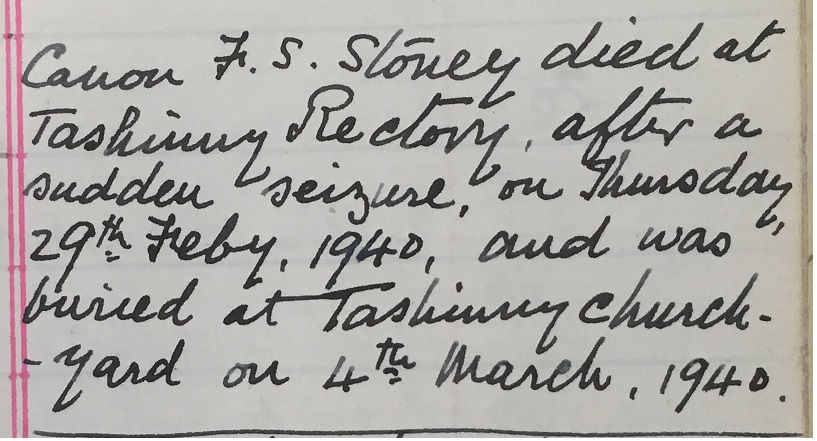 Canon F. S. Stoney died at
Tashinny Rectory, after a
sudden seizure, on Thursday,
29th Feby, 1940, and was
buried at Tashinny church-
-yard on 4th March, 1940.